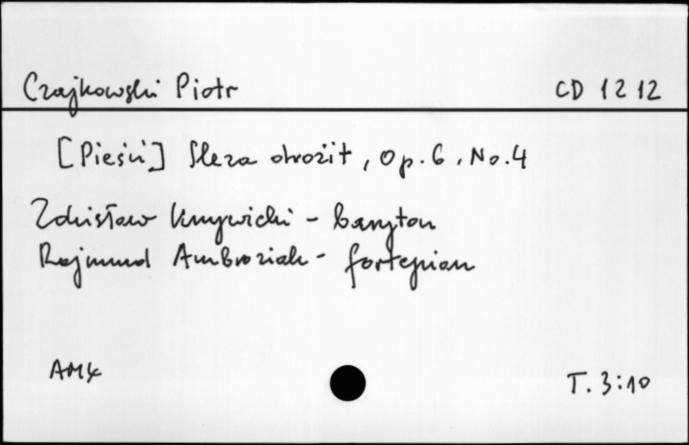 Czajkowski Piotr CD 1212
[Pieśń] Sleza drożit, Op. 6, No. 4
Zdzisław Krzywicki - baryton
Rajmund Ambroziak - fortepian
AMX T. 3:10